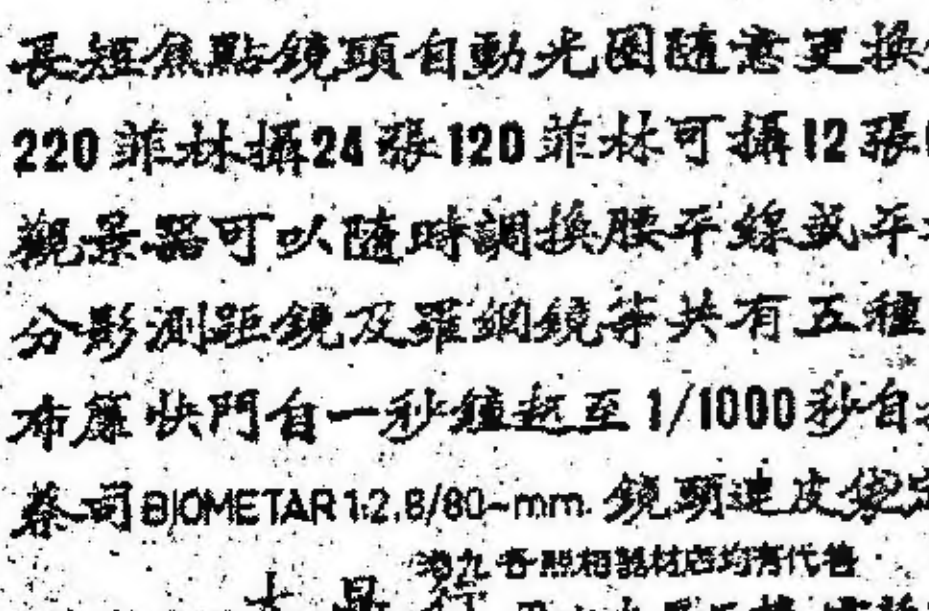 長短焦點鏡頭自動光圈隨意更換
220菲林攝24張120菲林可攝12張
觀景器可以隨時調換腰平線或平
分影測距鏡及羅網鏡等共有五種
布簾快門自一秒鐘起至1/1000秒自
蔡司BIOMETAR 1:2.8/80-mm.鏡頭連皮袋
港九各照相器材店均有代售